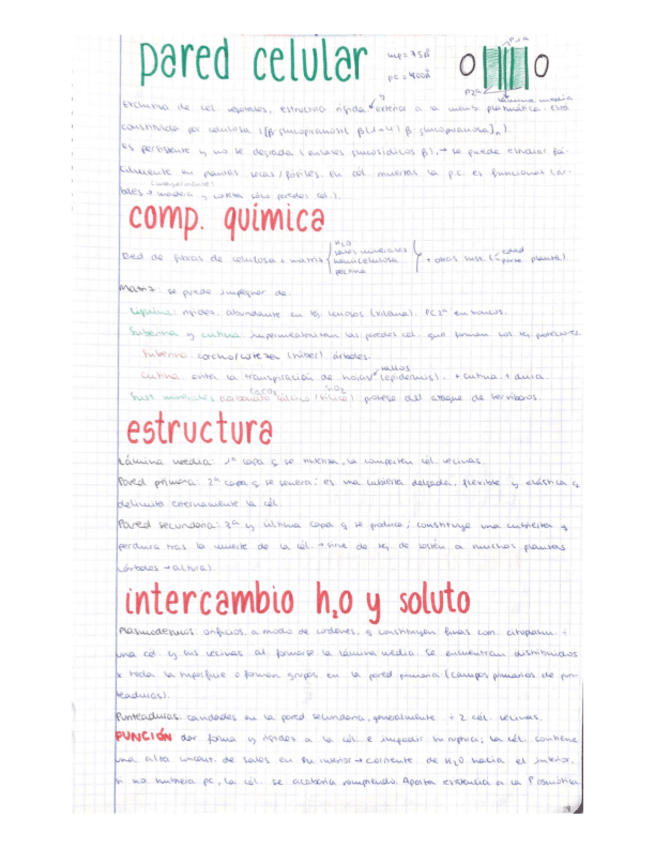 pared celular
mp = 75Å
pc = 400Å
P1ª
P2ª
lámina media
Exclusiva de cél. vegetales, estructura rígida exterior a la memb. plasmática. Está
constituida por celulosa
es persistente y no se degrada (enlaces glucosídicos β), → se puede estudiar fá-
cilmente en plantas secas / fósiles. En cél. muertas la p.c. es funcional (ár-
boles → madera y corcho sólo paredes cél.).
comp. química
Red de fibras de celulosa + matriz
H₂O
sales minerales
hemicelulosa
pectina
+ otras sust. (edad parte planta).
Matriz: se puede impregnar de:
Lignina: rigidez, abundante en tej. leñosos (xilema). PC2ª en troncos.
Suberina y cutina: impermeabilizan las paredes cél. que forman los tej. protectores
Suberina: corcho/corteza (súber) árboles.
tallos
Cutina: evita la transpiración de hojas (epidermis). + cutina, + dura.
CaCO₃ SiO₂
Sust. minerales carbonato cálcico (sílice) protege del ataque de herbívoros.
estructura
Lámina media: 1ª capa q se sintetiza, la comparten cél. vecinas.
Pared primaria: 2ª capa q se genera; es una cubierta delgada, flexible y elástica q
delimita externamente la cél.
Pared secundaria: 3ª y última capa q se produce; constituye una cubierta q
perdura tras la muerte de la cél. → sirve de tej. de sostén a muchas plantas
(árboles → altura).
intercambio h₂o y soluto
Plasmodesmos: orificios, a modo de cordones, q constituyen finas com. citoplasm. +
una cél. y sus vecinas al formarse la lámina media. Se encuentran distribuidos
x toda la superficie o forman grupos en la pared primaria (campos primarios de pun-
teaduras).
Punteaduras: cavidades en la pared secundaria, generalmente + 2 cél. vecinas.
FUNCIÓN dar forma y rigidez a la cél. e impedir su ruptura; la cél. contiene
una alta concent. de sales en su interior → corriente de H₂O hacia el interior.
Si no hubiera pc, la cél. se acabaría rompiendo. Aporta resistencia a la P osmótica